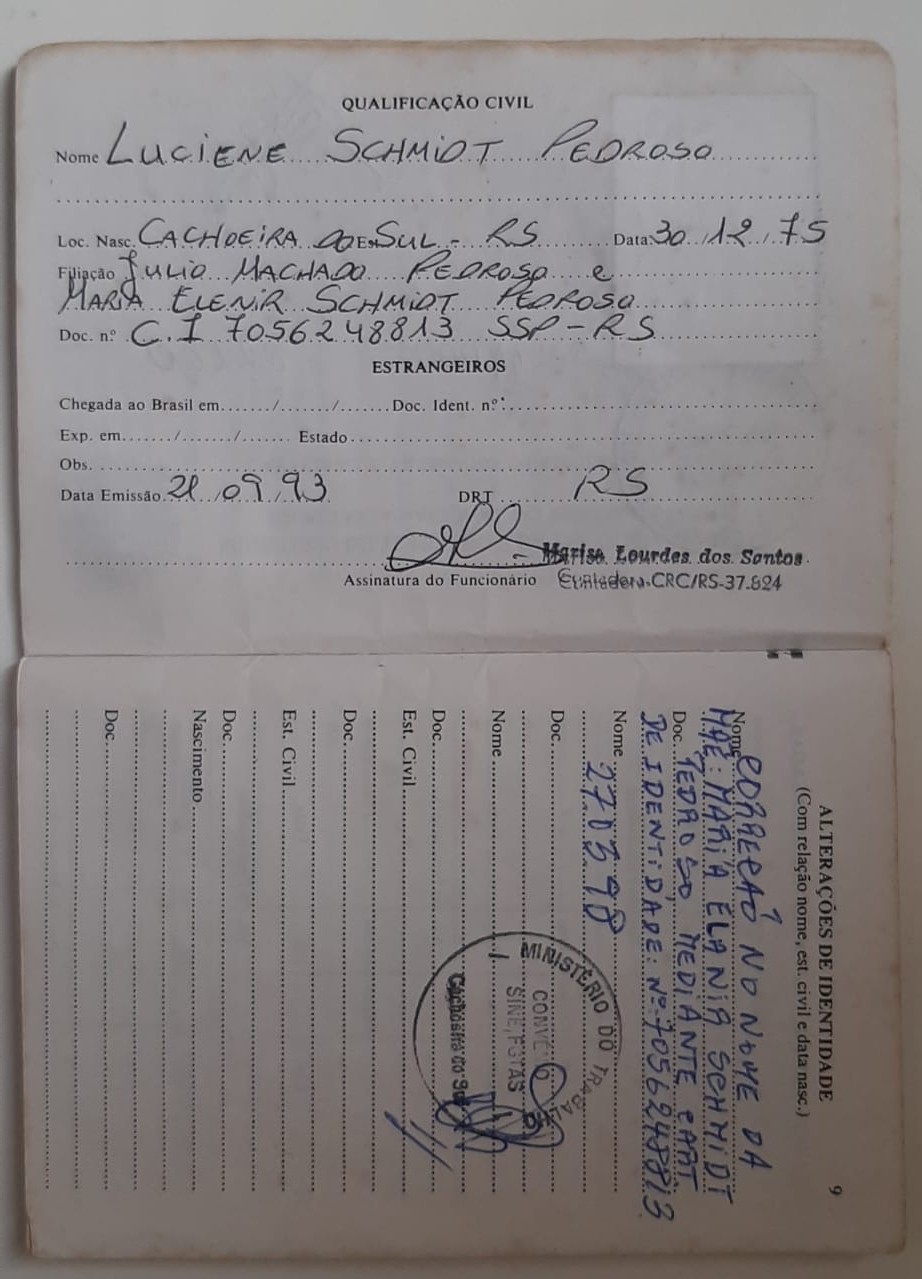 QUALIFICAÇÃO CIVIL
Nome LUCIENE SCHMIDT PEDROSO
Loc. Nasc. CACHOEIRA DO Est SUL - RS Data: 30/12/75
Filiação JULIO MACHADO PEDROSO e
MARIA ELENIR SCHMIDT PEDROSO
Doc. nº C.I 7056248813 SSP-RS
ESTRANGEIROS
Chegada ao Brasil em ......./......./....... Doc. Ident. nº
Exp. em ......./......./....... Estado
Obs.
Data Emissão 21/09/93 DRT RS
Marisa Lourdes dos Santos
Assinatura do Funcionário Contadora CRC/RS-37.824
9
ALTERAÇÕES DE IDENTIDADE
(Com relação nome, est. civil e data nasc.)
Nome CORREÇÃO NO NOME DA
MÃE: MARIA ELANIR SCHMIDT
Doc. PEDROSO, MEDIANTE CART
DE IDENTIDADE: Nº 7056248813
Nome 270598
Doc.
Nome
Doc.
Est. Civil
Doc.
Est. Civil
Doc.
Nascimento
Doc.
MINISTÉRIO DO TRABALHO
CONVÊNIO
SINE/FGTAS
Cachoeira do Sul